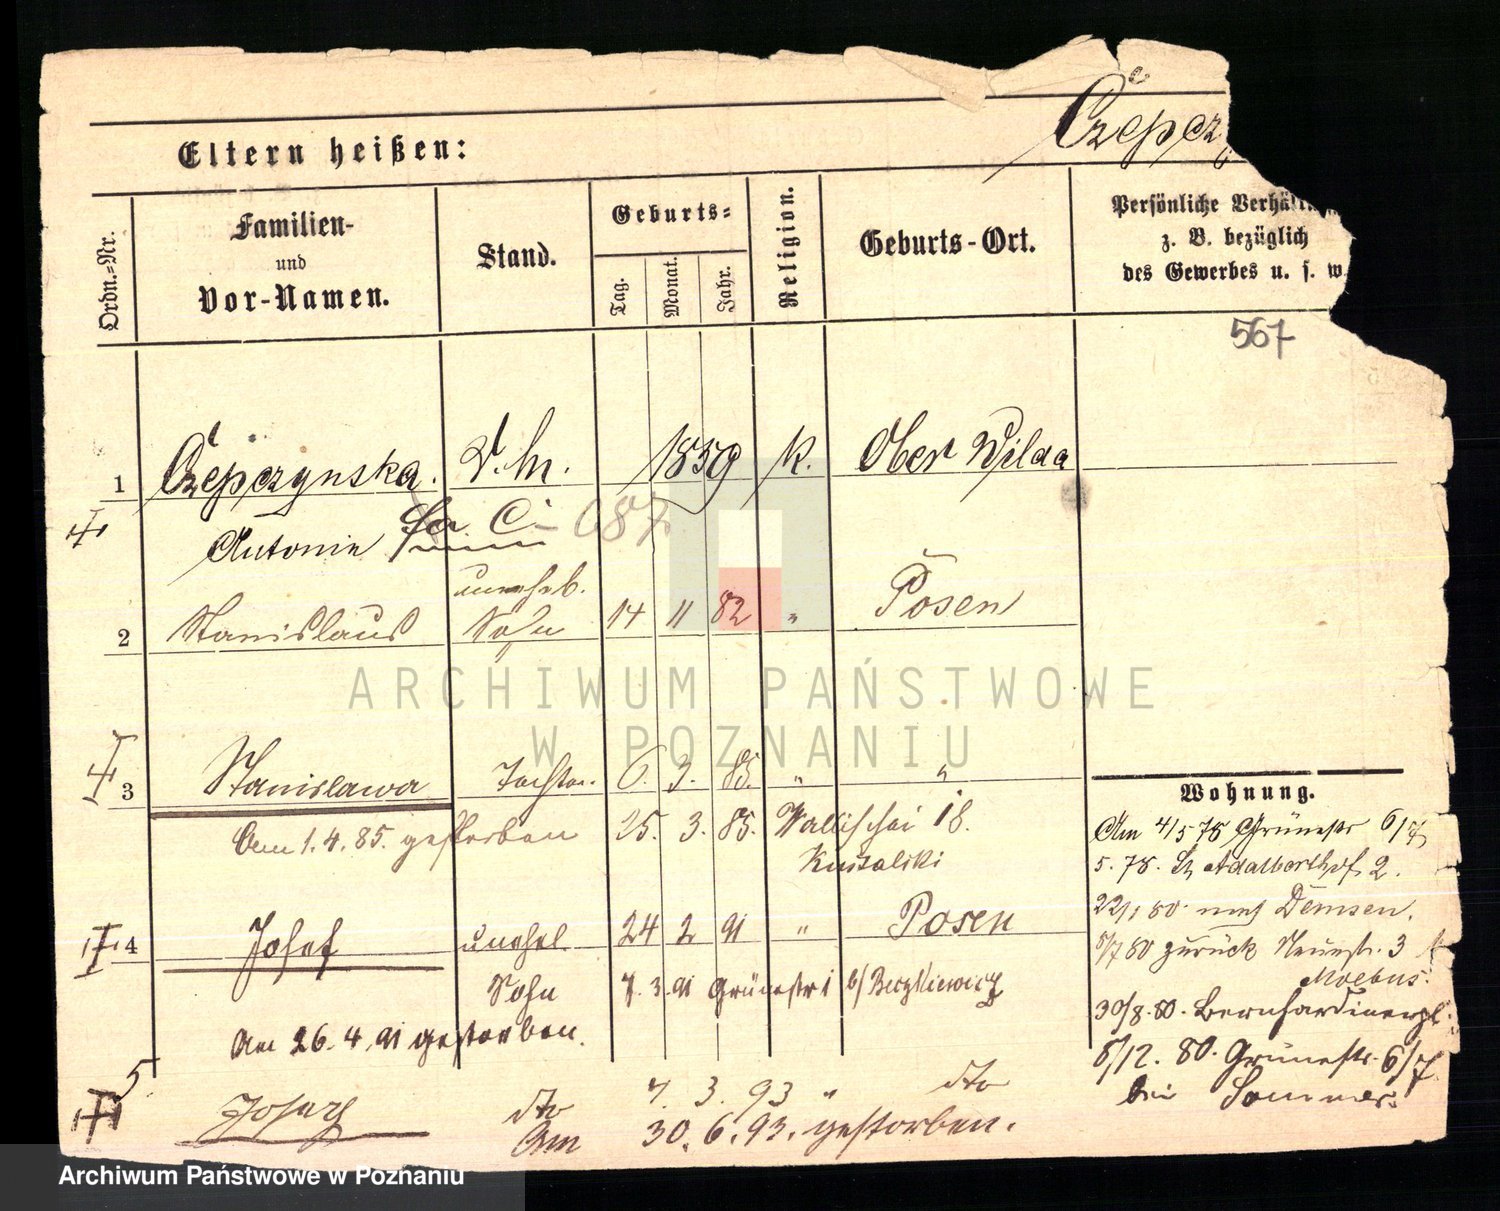 Czepcz
Eltern heißen:
Ordn.-Nr.
Familien-
und
Vor-Namen.
Stand.
Geburts-
Tag.
Monat.
Jahr.
Religion.
Geburts-Ort.
Persönliche Verhält
z. B. bezüglich
des Gewerbes u. s. w.
567
1 Czepczynska. 1859 K. Ober Wilda
Antonie
unehel.
2 Stanislaus Sohn 14 11 82 " Posen
ARCHIWUM PAŃSTWOWE
W POZNANIU
3 Stanislawa Tochter. 6. 3. 85. " "
Am 1.4.85. gestorben 25. 3. 85. Wallischei 18.
4 Josef unehel 24 2 91 " Posen
Sohn 7. 3. 91 Grünestr 1 b/
Am 26. 4. 91 gestorben.
5 Josef dto 7. 3. 93 " dto
Am 30. 6. 93. gestorben.
Wohnung.
Am 4/5 78 Grünestr 6/7
5. 78. St Adalberthof 2.
22/1 80 nach Demsen.
5/7 80 zurück Neuestr. 3
Moebus.
30/8. 80. Bernhardinerpl.
5/12. 80. Grünestr. 6/7
bei Sommer.
Archiwum Państwowe w Poznaniu